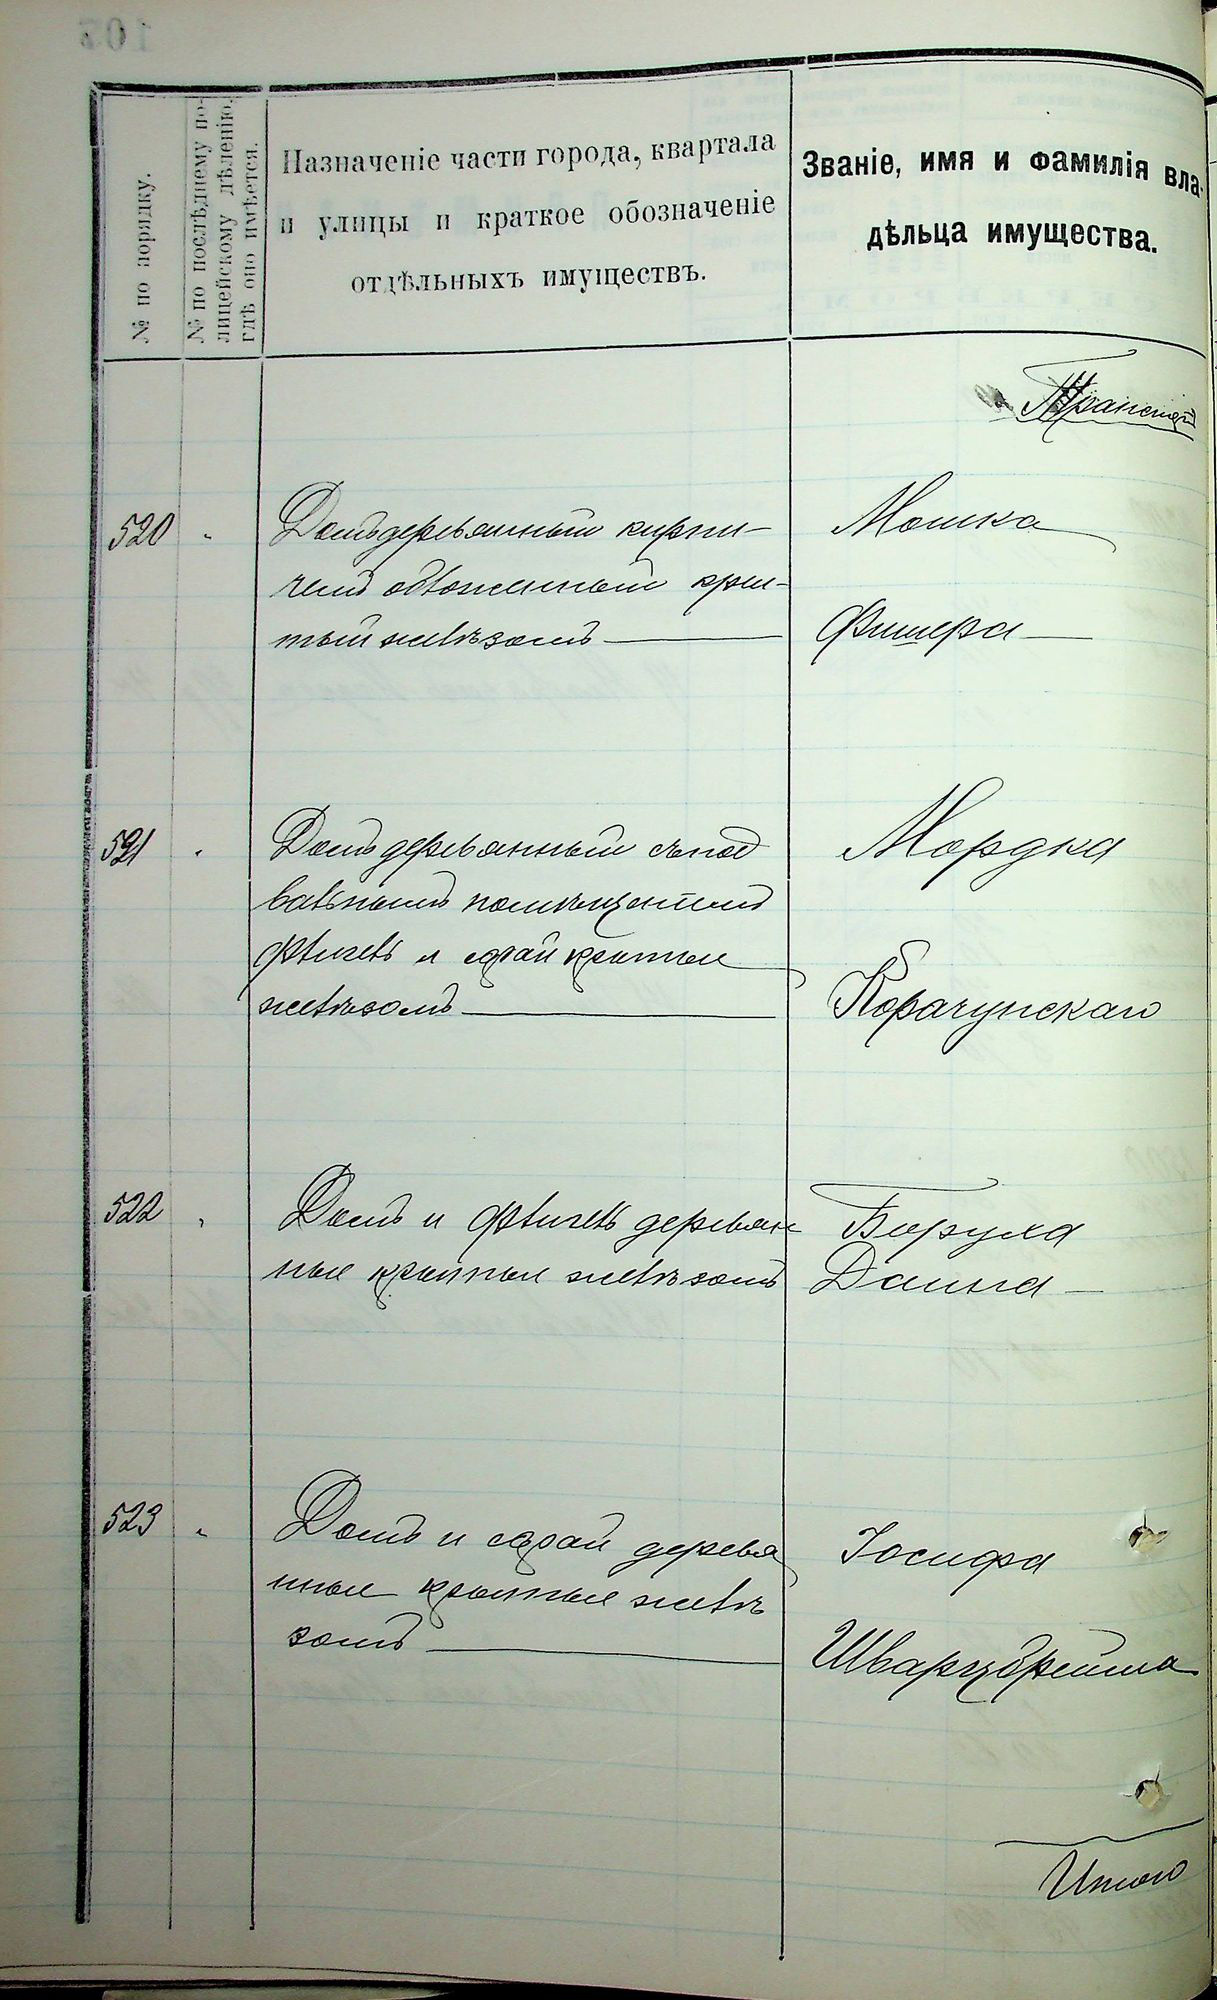 № по порядку.
№ по послѣднему по-
лицейскому дѣленію,
гдѣ оно имѣется.
Назначеніе части города, квартала
и улицы и краткое обозначеніе
отдѣльныхъ имуществъ.
Званіе, имя и фамилія вла-
дѣльца имущества.
Транспортъ
520 Домъ деревянный кирпи-
чемъ обложенный кры-
тый желѣзомъ
Мошка
Фишера
521 Домъ деревянный съ под
вальнымъ помѣщеніемъ
флигель и сарай крытые
желѣзомъ
Мордка
Корачунскаго
522 Домъ и флигель деревян
ные крытые желѣзомъ
Боруха
Данна
523 Домъ и сарай деревя
нные крытые желѣ
зомъ
Іосифа
Шварцбрейма
Итого